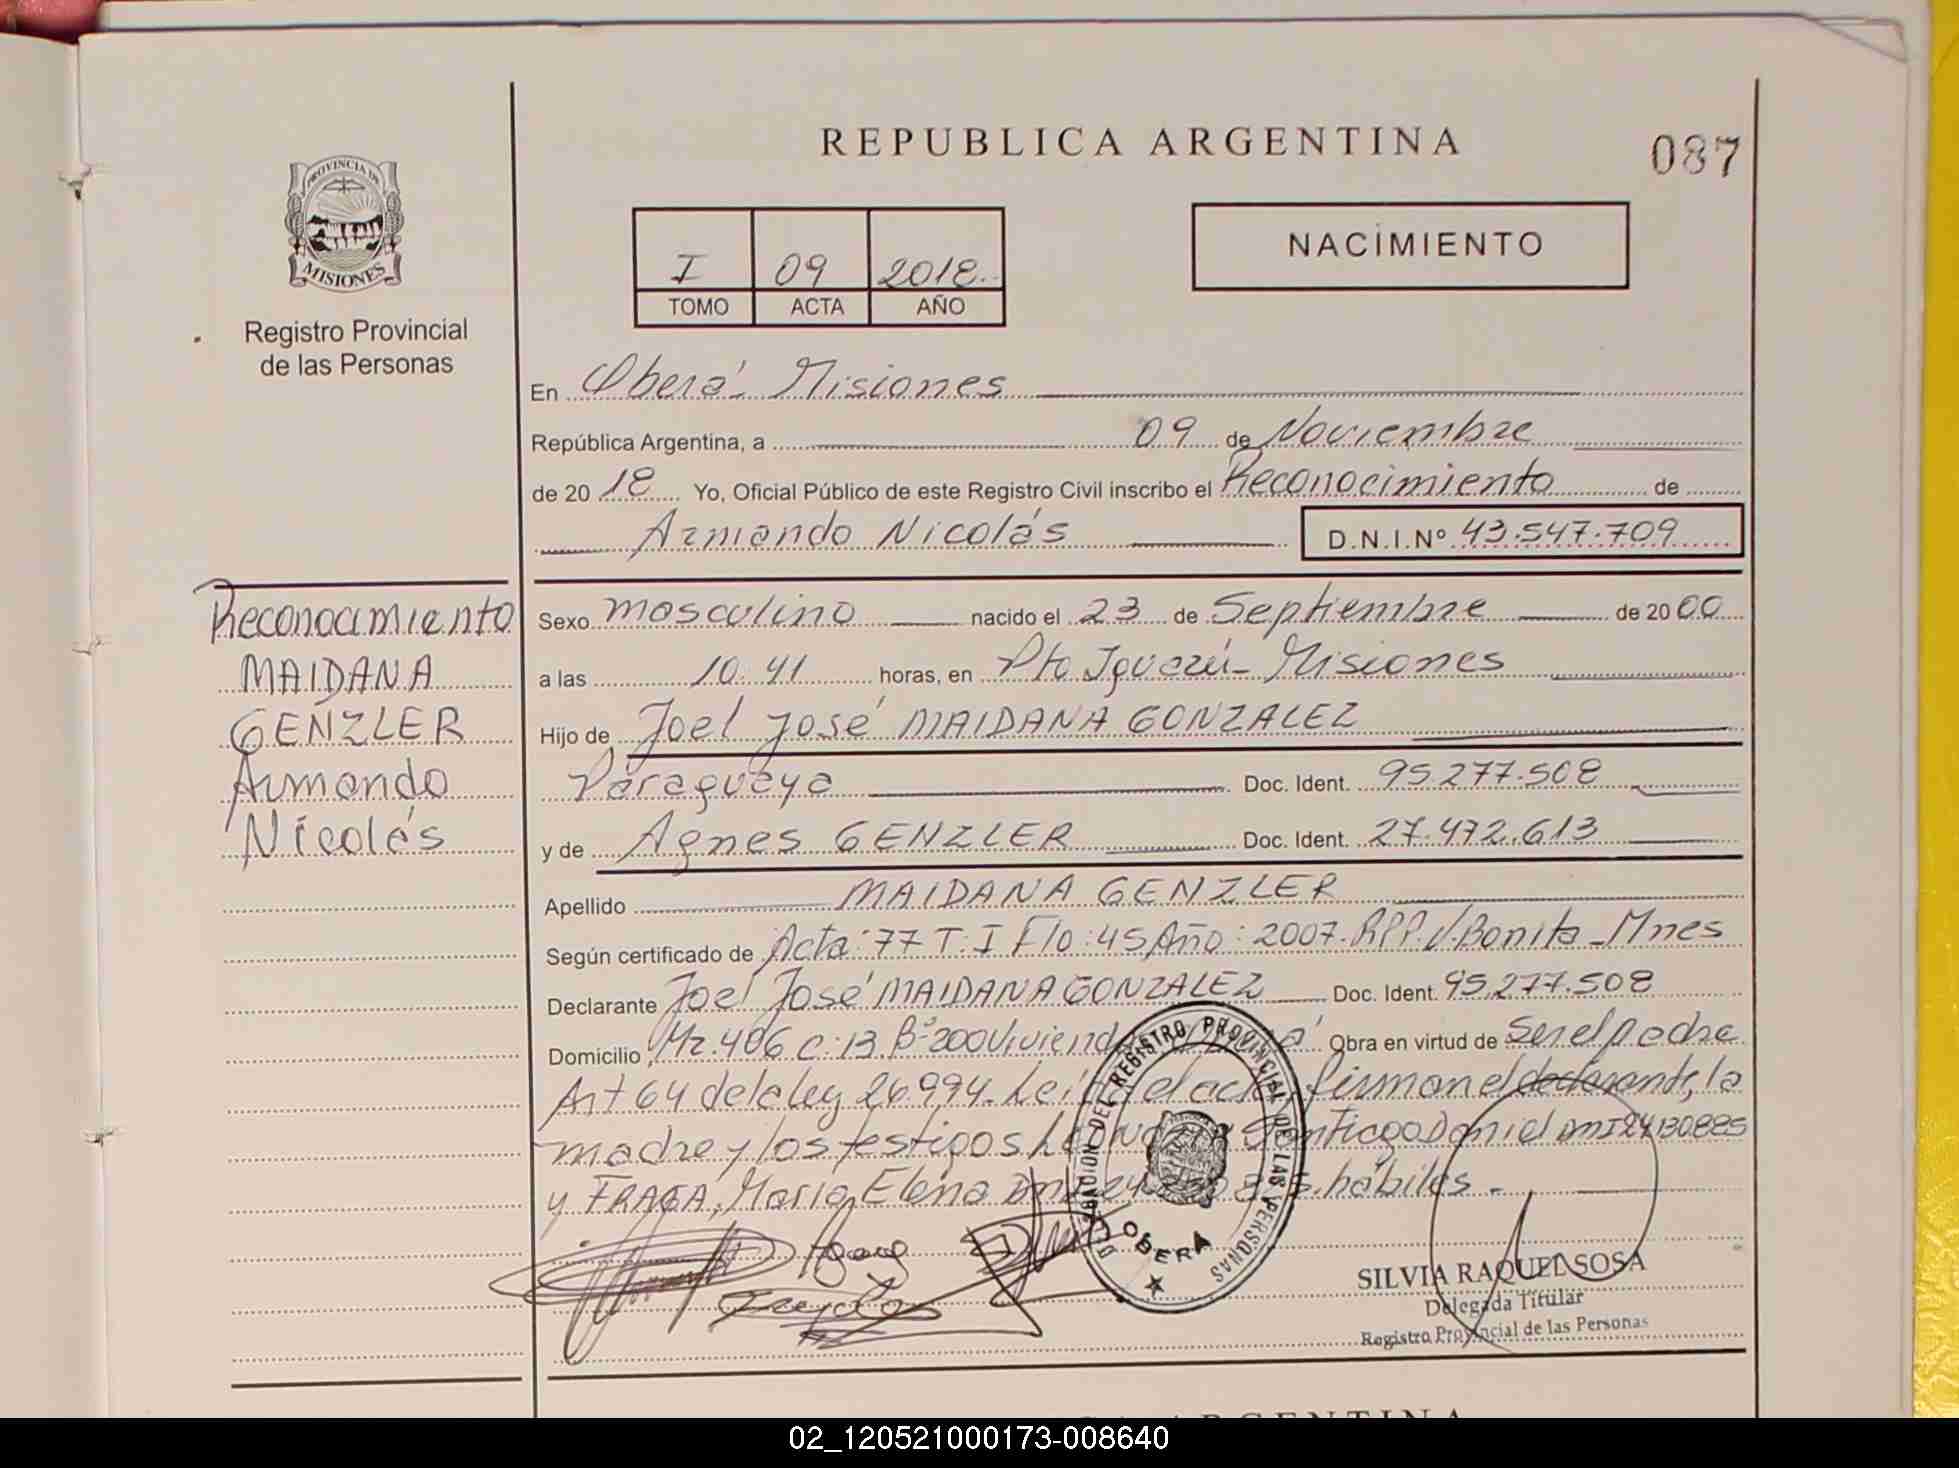 REPUBLICA ARGENTINA
087
PROVINCIA DE
MISIONES
Registro Provincial
de las Personas
I 09 2018.
TOMO ACTA AÑO
NACIMIENTO
En Oberá - Misiones
República Argentina, a 09 de Noviembre
de 20 18 Yo, Oficial Público de este Registro Civil inscribo el Reconocimiento de
Armando Nicolás D.N.I.Nº 43.547.709
Reconocimiento
MAIDANA
GENZLER
Armando
Nicolás
Sexo masculino nacido el 23 de Septiembre de 20 00
a las 10.41 horas, en Pto Iguazú - Misiones
Hijo de Joel José MAIDANA GONZALEZ
Paraguaya Doc. Ident. 95.277.508
y de Agnes GENZLER Doc. Ident. 27.472.613
Apellido MAIDANA GENZLER
Según certificado de Acta: 77 T: I Flo: 45 Año: 2007. RPP. V. Bonita - Mnes
Declarante Joel José MAIDANA GONZALEZ Doc. Ident. 95.277.508
Domicilio Mz. 406 c: 13 Bº 200 Obra en virtud de Ser el padre
Art 64 de la ley 26994. firman el declarante, la
madre y los testigos Santiago Daniel DNI 24130885
y FRAGA, Maria Elena hábiles. -
DELEGACION DEL REGISTRO PROVINCIAL DE LAS PERSONAS
OBERA
SILVIA RAQUEL SOSA
Delegada Titular
Registro Provincial de las Personas
02_120521000173-008640